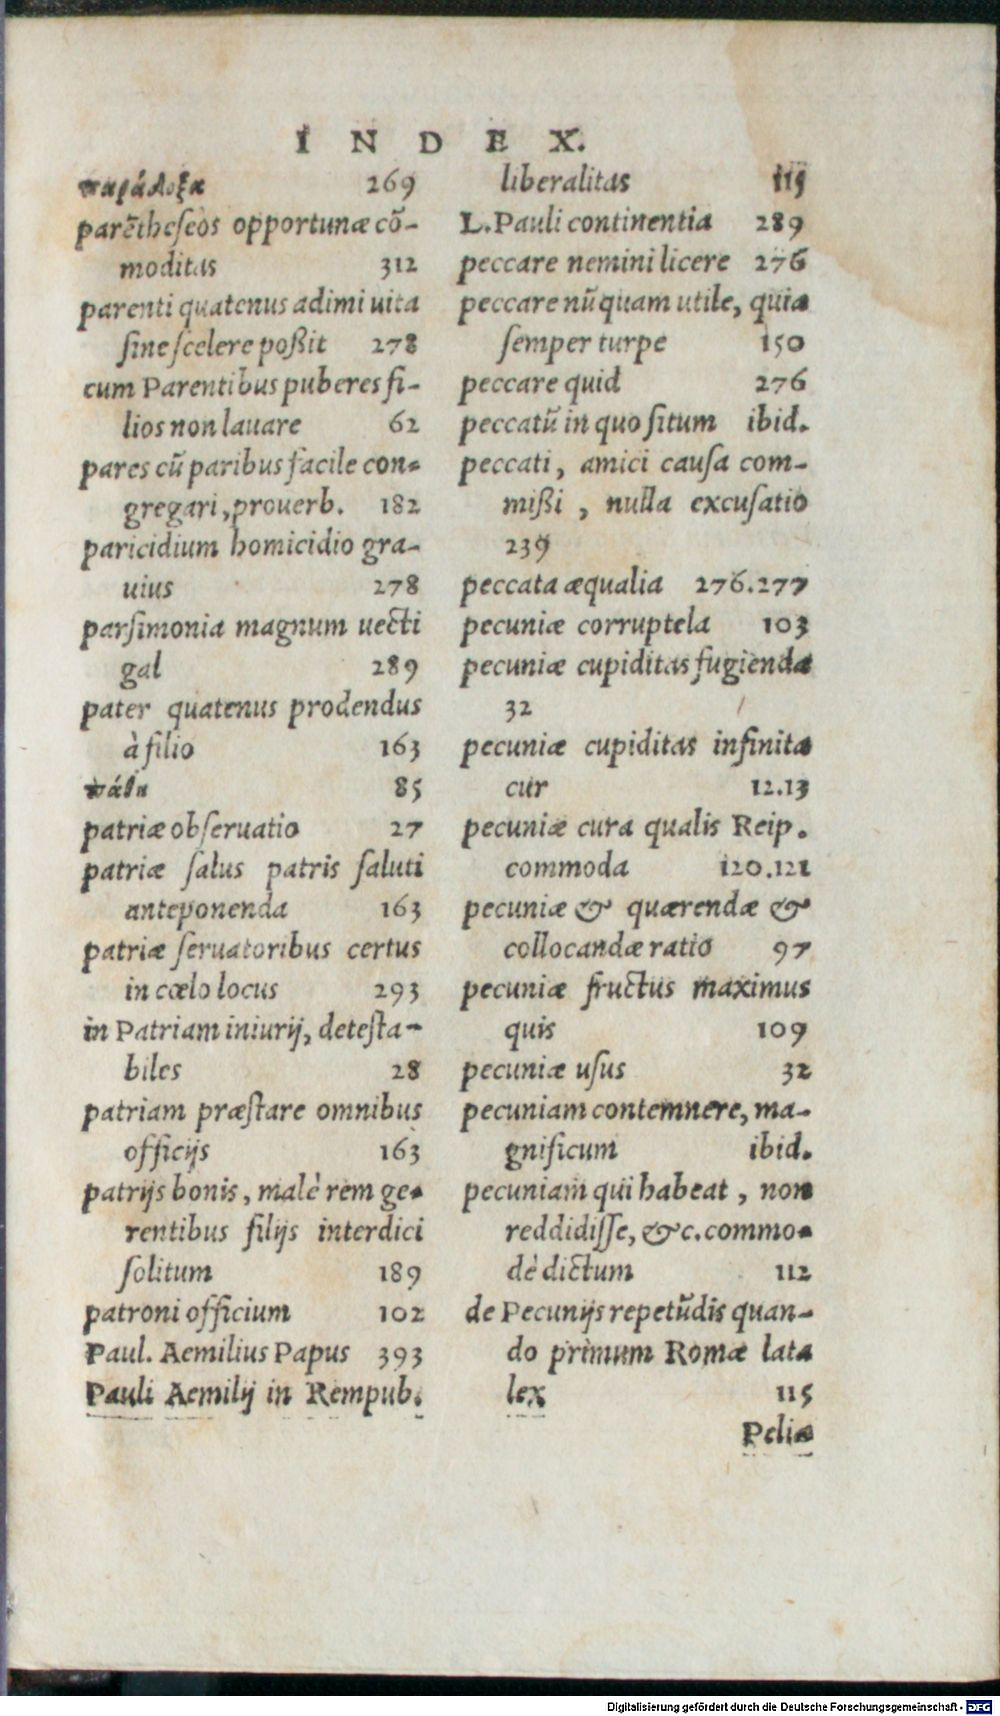 INDEX.
παράδοξα 269
parẽtheseos opportunæ cõ-
moditas 312
parenti quatenus adimi uita
sine scelere poßit 278
cum Parentibus puberes fi-
lios non lauare 62
pares cũ paribus facile con-
gregari, prouerb. 182
paricidium homicidio gra-
uius 278
parsimonia magnum uecti
gal 289
pater quatenus prodendus
à filio 163
πάθη 85
patriæ obseruatio 27
patriæ salus patris saluti
anteponenda 163
patriæ seruatoribus certus
in cœlo locus 293
in Patriam iniurij, detesta-
biles 28
patriam præstare omnibus
officijs 163
patrijs bonis, malè rem ge-
rentibus filijs interdici
solitum 189
patroni officium 102
Paul. Aemilius Papus 393
Pauli Aemilij in Rempub.
liberalitas 115
L. Pauli continentia 289
peccare nemini licere 276
peccare nũquam utile, quia
semper turpe 150
peccare quid 276
peccatũ in quo situm ibid.
peccati, amici causa com-
mißi, nulla excusatio
239
peccata æqualia 276.277
pecuniæ corruptela 103
pecuniæ cupiditas fugienda
32
pecuniæ cupiditas infinita
cur 12.13
pecuniæ cura qualis Reip.
commoda 120.121
pecuniæ & quærendæ &
collocandæ ratio 97
pecuniæ fructus maximus
quis 109
pecuniæ usus 32
pecuniam contemnere, ma-
gnificum ibid.
pecuniam qui habeat, non
reddidisse, &c. commo-
dè dictum 112
de Pecunijs repetũdis quan-
do primum Romæ lata
lex 115
Peliæ
Digitalisierung gefördert durch die Deutsche Forschungsgemeinschaft - DFG